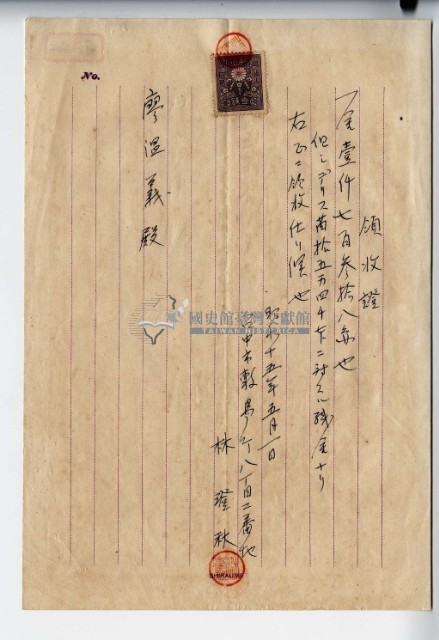 領收證
一金壹仟七百參拾八無也
但シデリス苗拾五万四千本ニ対スル残金ナリ
右正ニ領收仕リ候也
昭和十五年五月一日
台中市敷島町八丁目二番地
林瑳秋
廖温義殿
No.
國史館臺灣文獻館
TAIWAN HISTORICA